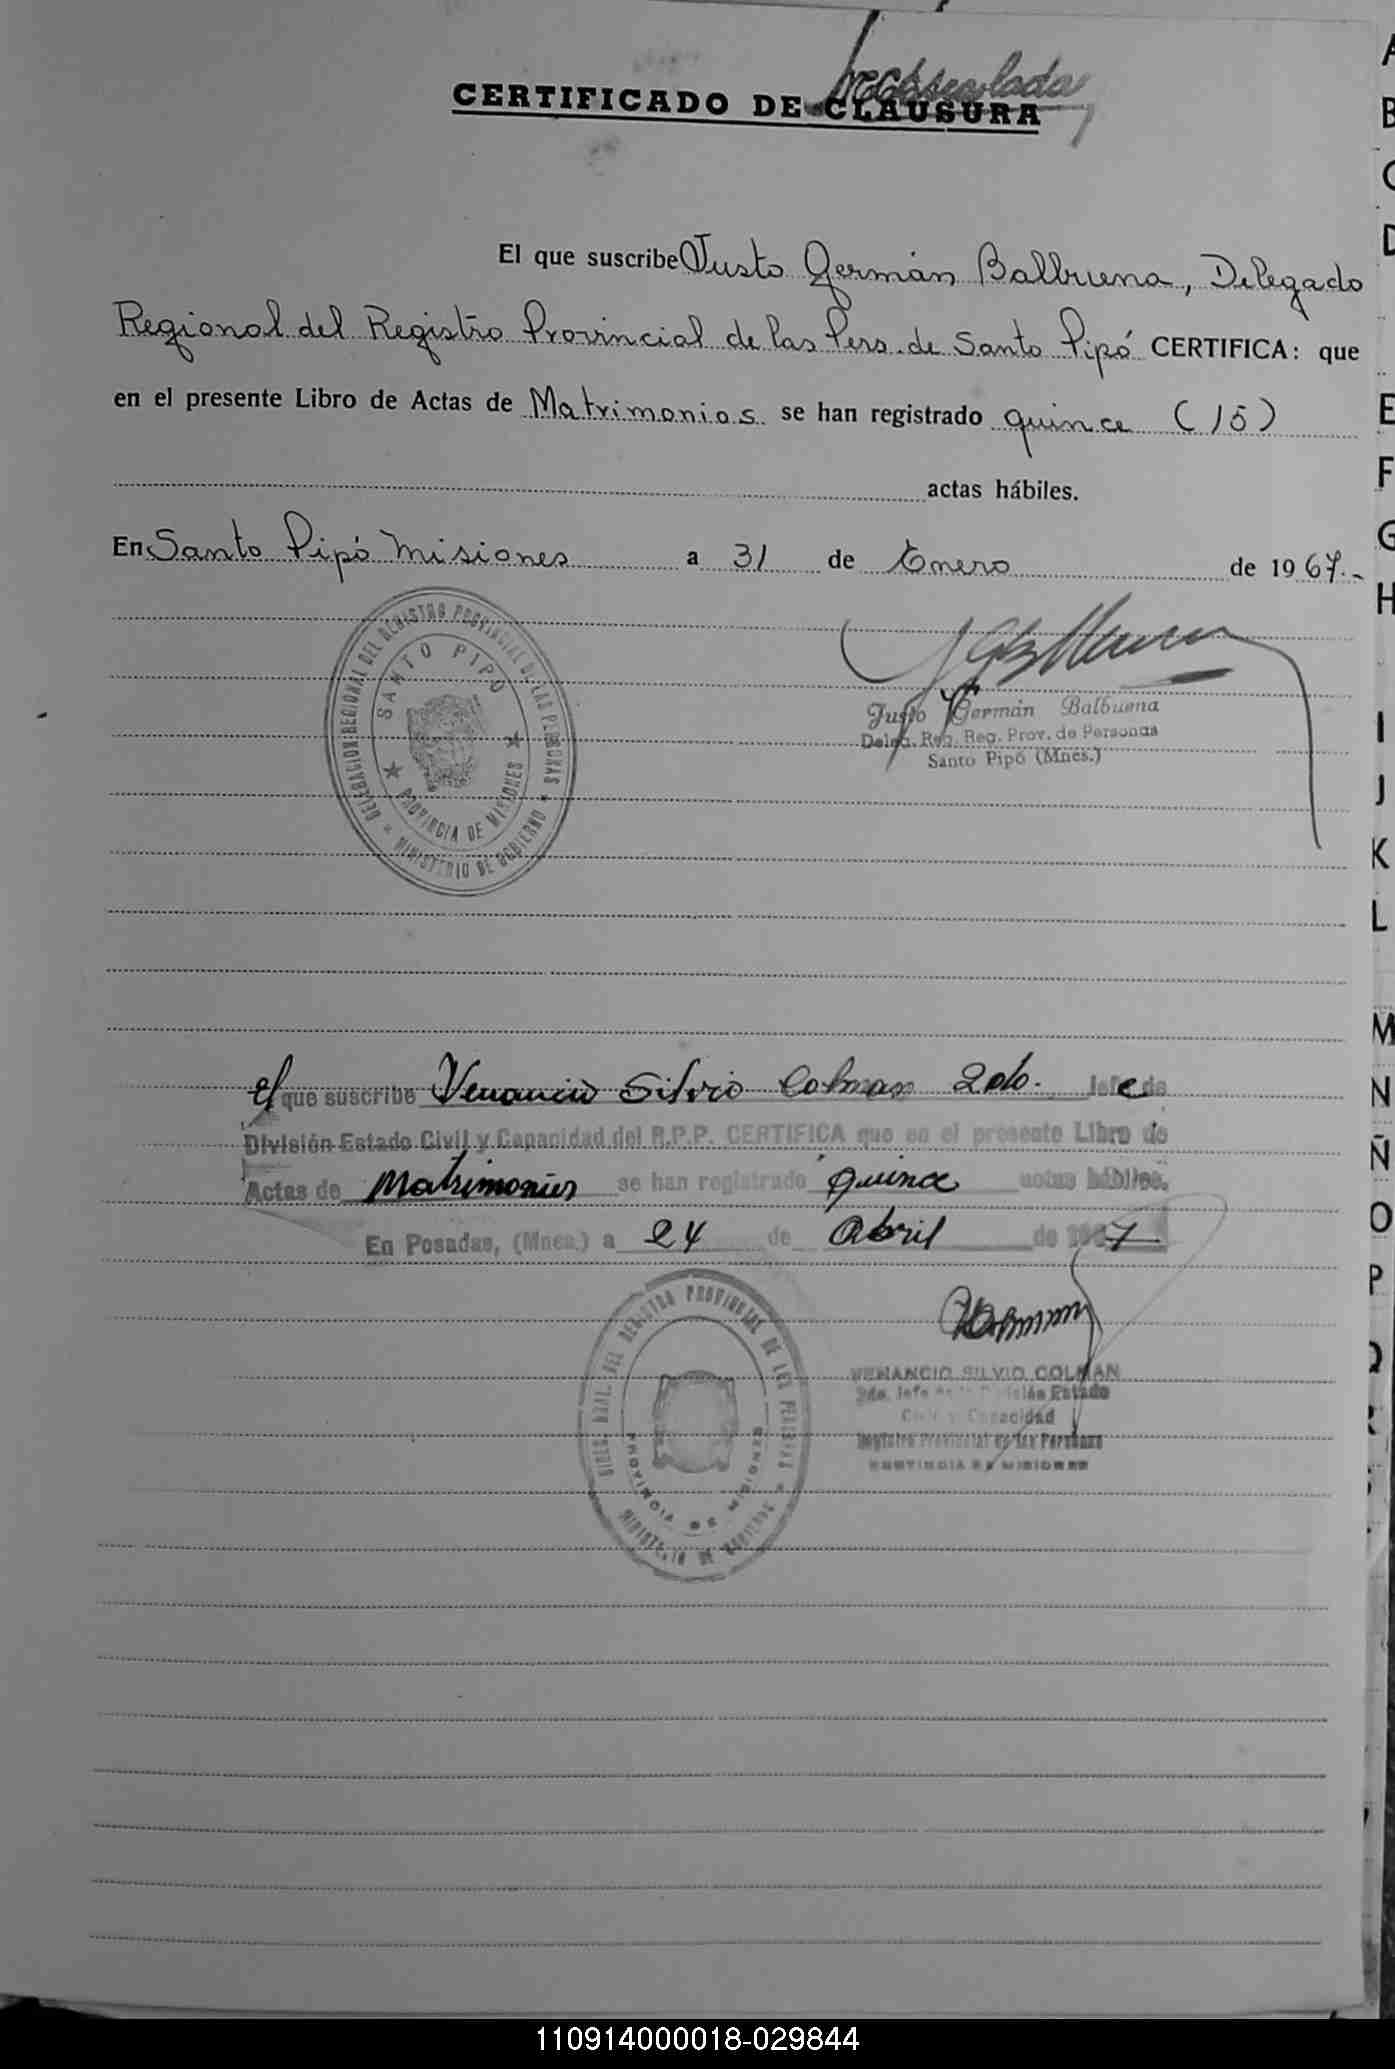 CERTIFICADO DE CLAUSURA
El que suscribe Justo Germán Balbuena, Delegado
Regional del Registro Provincial de las Pers. de Santo Pipó CERTIFICA: que
en el presente Libro de Actas de Matrimonios se han registrado quince (15)
actas hábiles.
En Santo Pipó Misiones a 31 de Enero de 1967.-
DELEGACION REGIONAL DEL REGISTRO PROVINCIAL DE LAS PERSONAS
SANTO PIPO
PROVINCIA DE MISIONES
MINISTERIO DE GOBIERNO
Justo Germán Balbuena
Deleg. Reg. Reg. Prov. de Personas
Santo Pipó (Mnes.)
El que suscribe Venancio Silvio Colman 2do. Jefe de
División Estado Civil y Capacidad del R.P.P. CERTIFICA que en el presente Libro de
Actas de Matrimonios se han registrado quince actas hábiles.
En Posadas, (Mnes.) a 24 de Abril de 1967
DIREC. GRAL. DEL REGISTRO PROVINCIAL DE LAS PERSONAS
PROVINCIA DE MISIONES
MINISTERIO DE GOBIERNO
VENANCIO SILVIO COLMAN
2do. Jefe de la División Estado
Civil y Capacidad
Registro Provincial de las Personas
PROVINCIA DE MISIONES
A
B
C
D
E
F
G
H
I
J
K
L
M
N
Ñ
O
P
Q
R
110914000018-029844